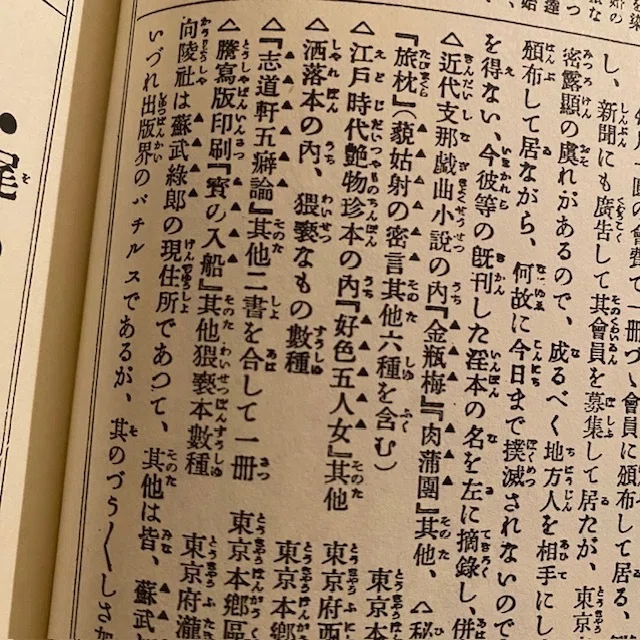 し、新聞にも廣告して其會員を募集して居たが、東京
密露顯の虞れがあるので、成るべく地方人を相手にし
頒布して居ながら、何故に今日まで撲滅されないので
を得ない、今彼等の旣刊した淫本の名を左に摘錄し、併
△近代支那戯曲小説の内『金瓶梅』『肉蒲團』其他、△秘
『旅枕』(藐姑射の密言其他六種を含む) 東京本
△江戸時代艶物珍本の内『好色五人女』其他 東京府西
△洒落本の内、猥褻なもの數種 東京本
△『志道軒五癖論』其他二書を合して一冊 東京本鄕區
△謄寫版印刷『寳の入船』其他猥褻本數種 東京府瀧
向陵社は蘇武綠郎の現住所であつて、其他は皆、蘇武
いづれ出版界のバチルスであるが、其のづう〱しさ加